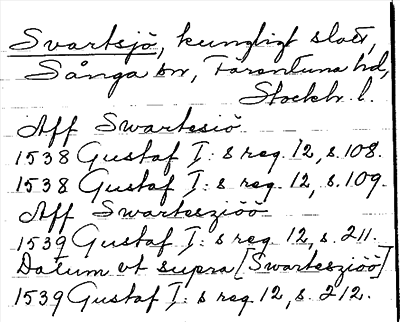 Svartsjö, kungligt slott,
Sånga sn, Färentuna hd,
Stockh. l.
Aff Swartesiö
1538 Gustaf I: s reg. 12, s. 108.
1538 Gustaf I: s reg. 12, s. 109.
Aff Swartesziöö
1539 Gustaf I: s reg. 12, s. 211.
Datum vt supra [Swartesziöö]
1539 Gustaf I: s reg. 12, s. 212.